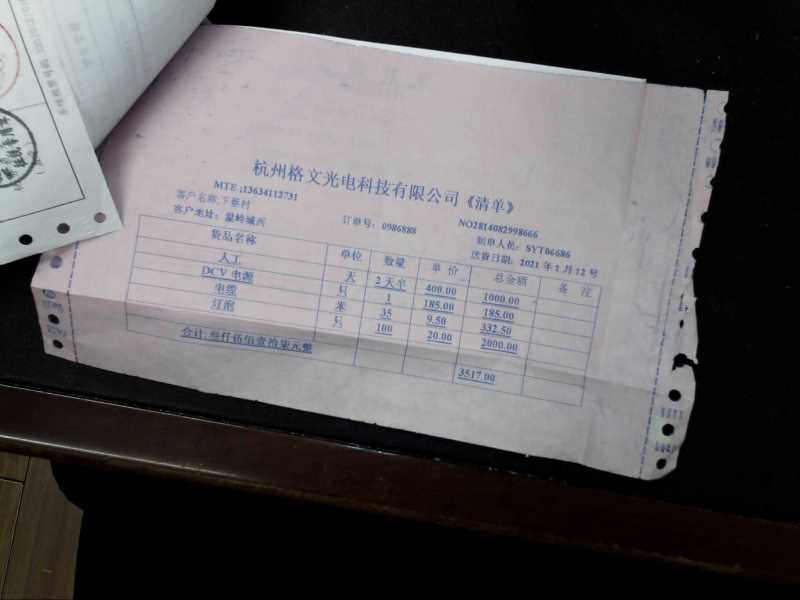 杭州格文光电科技有限公司《清单》
MTE:13634112731
客户名称:下蔡村 订单号: 0986888 NO2814082998666
客户地址: 温岭城河 制单人员: SYT06686
送货日期: 2021 年 1 月 12 号
货品名称 单位 数量 单 价 总金额 备 注
人工 天 2 天半 400.00 1000.00
DCV 电源 只 1 185.00 185.00
电缆 米 35 9.50 332.50
灯泡 只 100 20.00 2000.00
合计:叁仟伍佰壹拾柒元整 3517.00